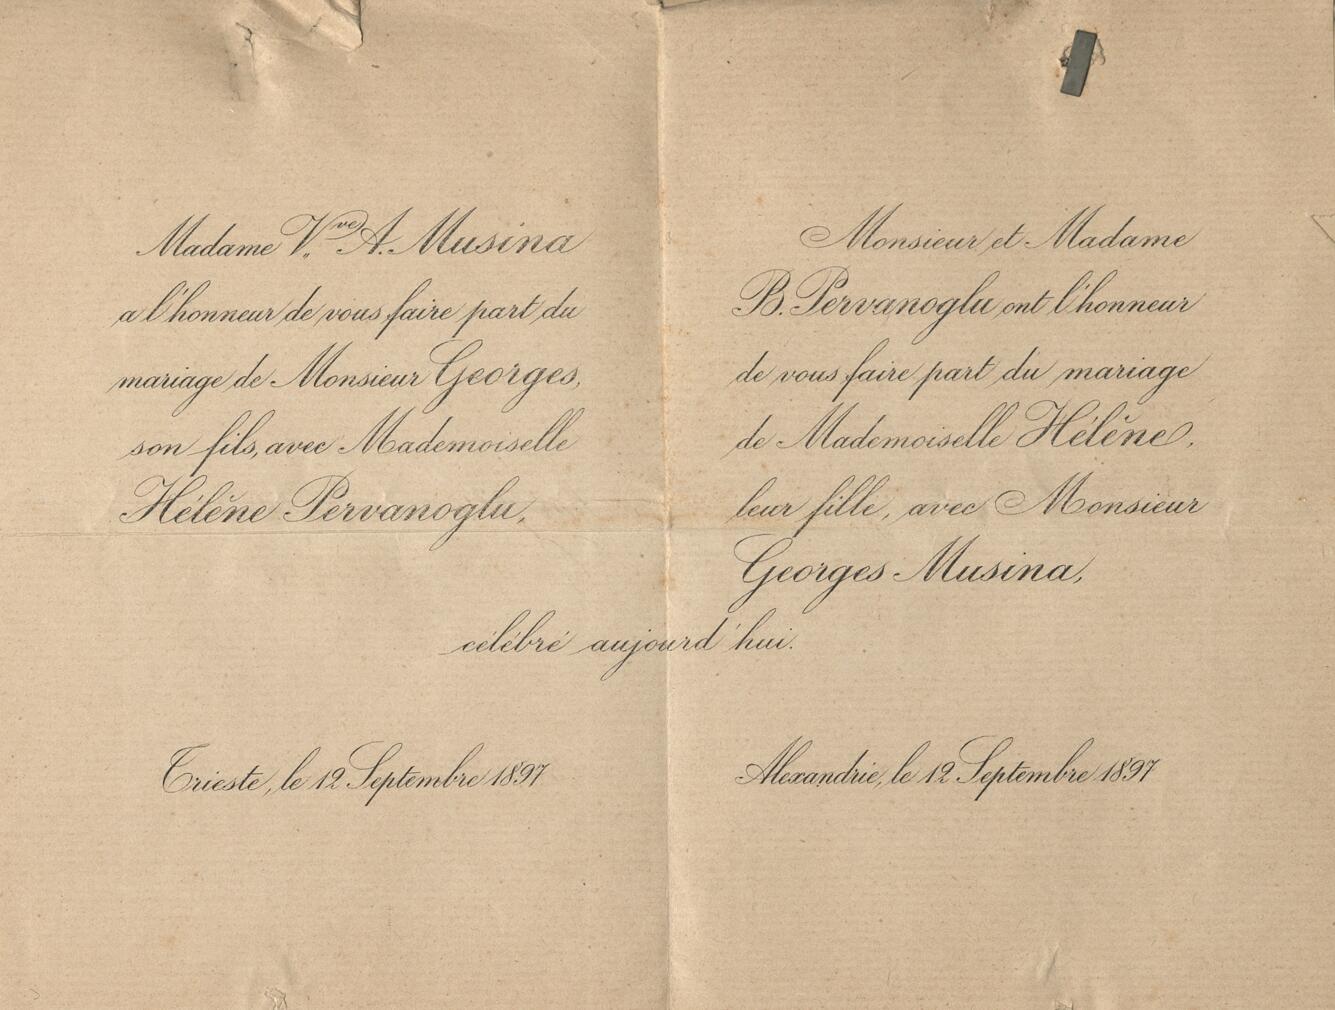 Madame Vve A. Musina
a l'honneur de vous faire part du
mariage de Monsieur Georges,
son fils, avec Mademoiselle
Hélène Pervanoglu,
Monsieur et Madame
B. Pervanoglu ont l'honneur
de vous faire part du mariage
de Mademoiselle Hélène,
leur fille, avec Monsieur
Georges Musina,
célébré aujourd'hui.
Trieste, le 12 Septembre 1897
Alexandrie, le 12 Septembre 1897